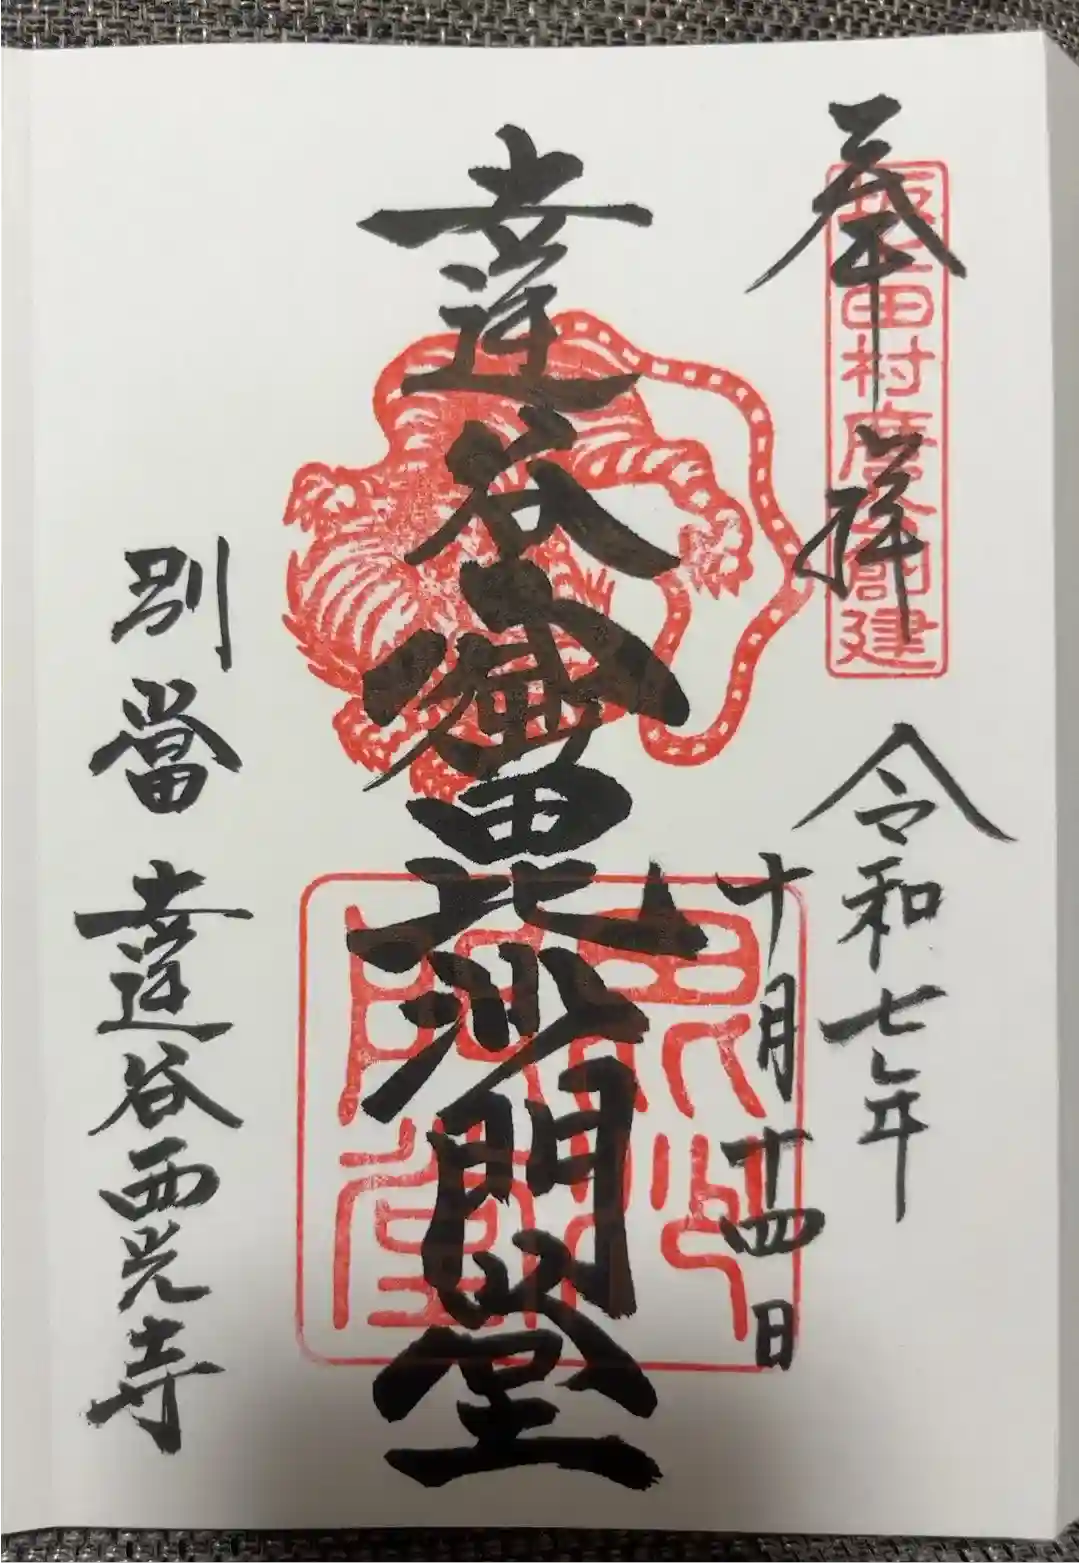 奉拝
坂上田村麿公創建
令和七年
十月十四日
達谷窟毘沙門堂
毘沙門堂
別當
達谷西光寺